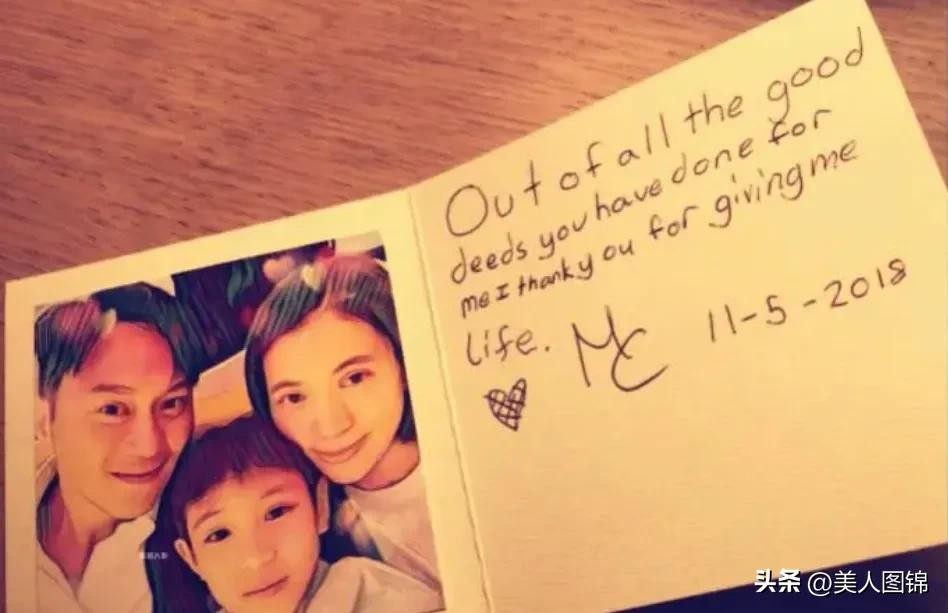 Out of all the good
deeds you have done for
me I thank you for giving me
life. MC 11-5-2018
头条 @美人图锦